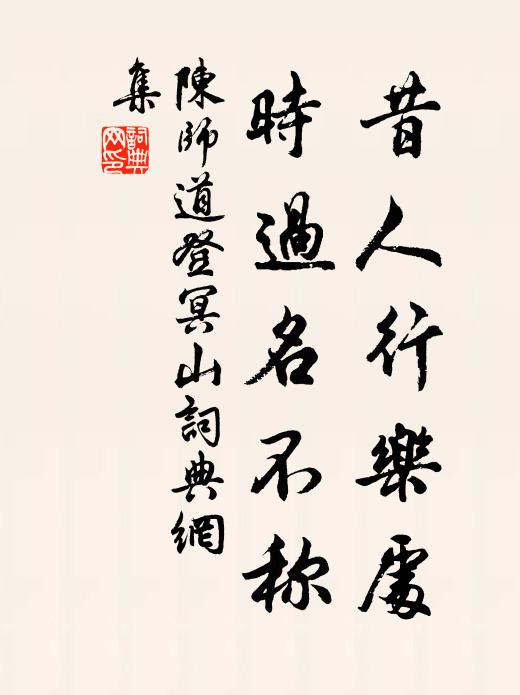 昔人行樂處
時過名不称
陳師道登冥山詞典網
集
詞典
网印